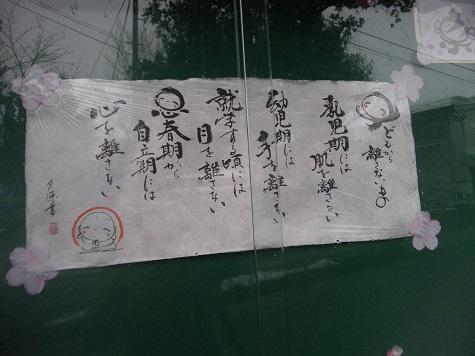 子どもから
離さないもの
乳児期には
肌を離さない
幼児期には
手を離さない
就学する頃には
目を離さない
思春期から
自立期には
心を離さない